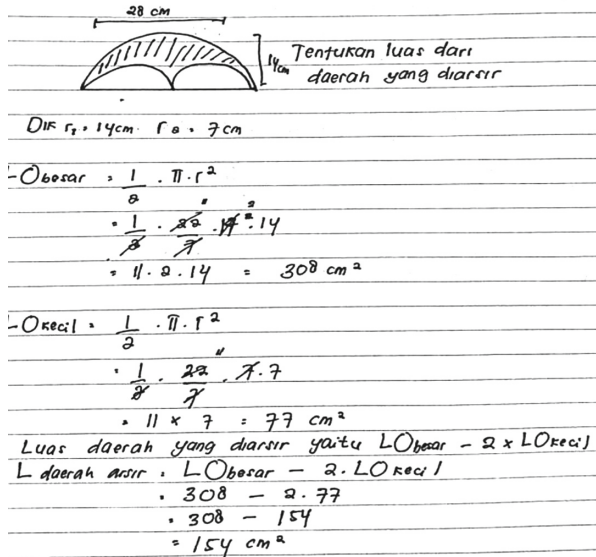 28 cm
14cm
Tentukan luas dari
daerah yang diarsir
Dik r₁ = 14cm r₂ = 7cm
- O besar = 1/2 . π . r²
= 1/2 . 22/7 . 14 . 14
11 2
= 11 . 2 . 14 = 308 cm²
- O kecil = 1/2 . π . r²
= 1/2 . 22/7 . 7 . 7
11
= 11 × 7 = 77 cm²
Luas daerah yang diarsir yaitu LO besar - 2 × LO kecil
L daerah arsir = LO besar - 2 . LO kecil
= 308 - 2 . 77
= 308 - 154
= 154 cm²